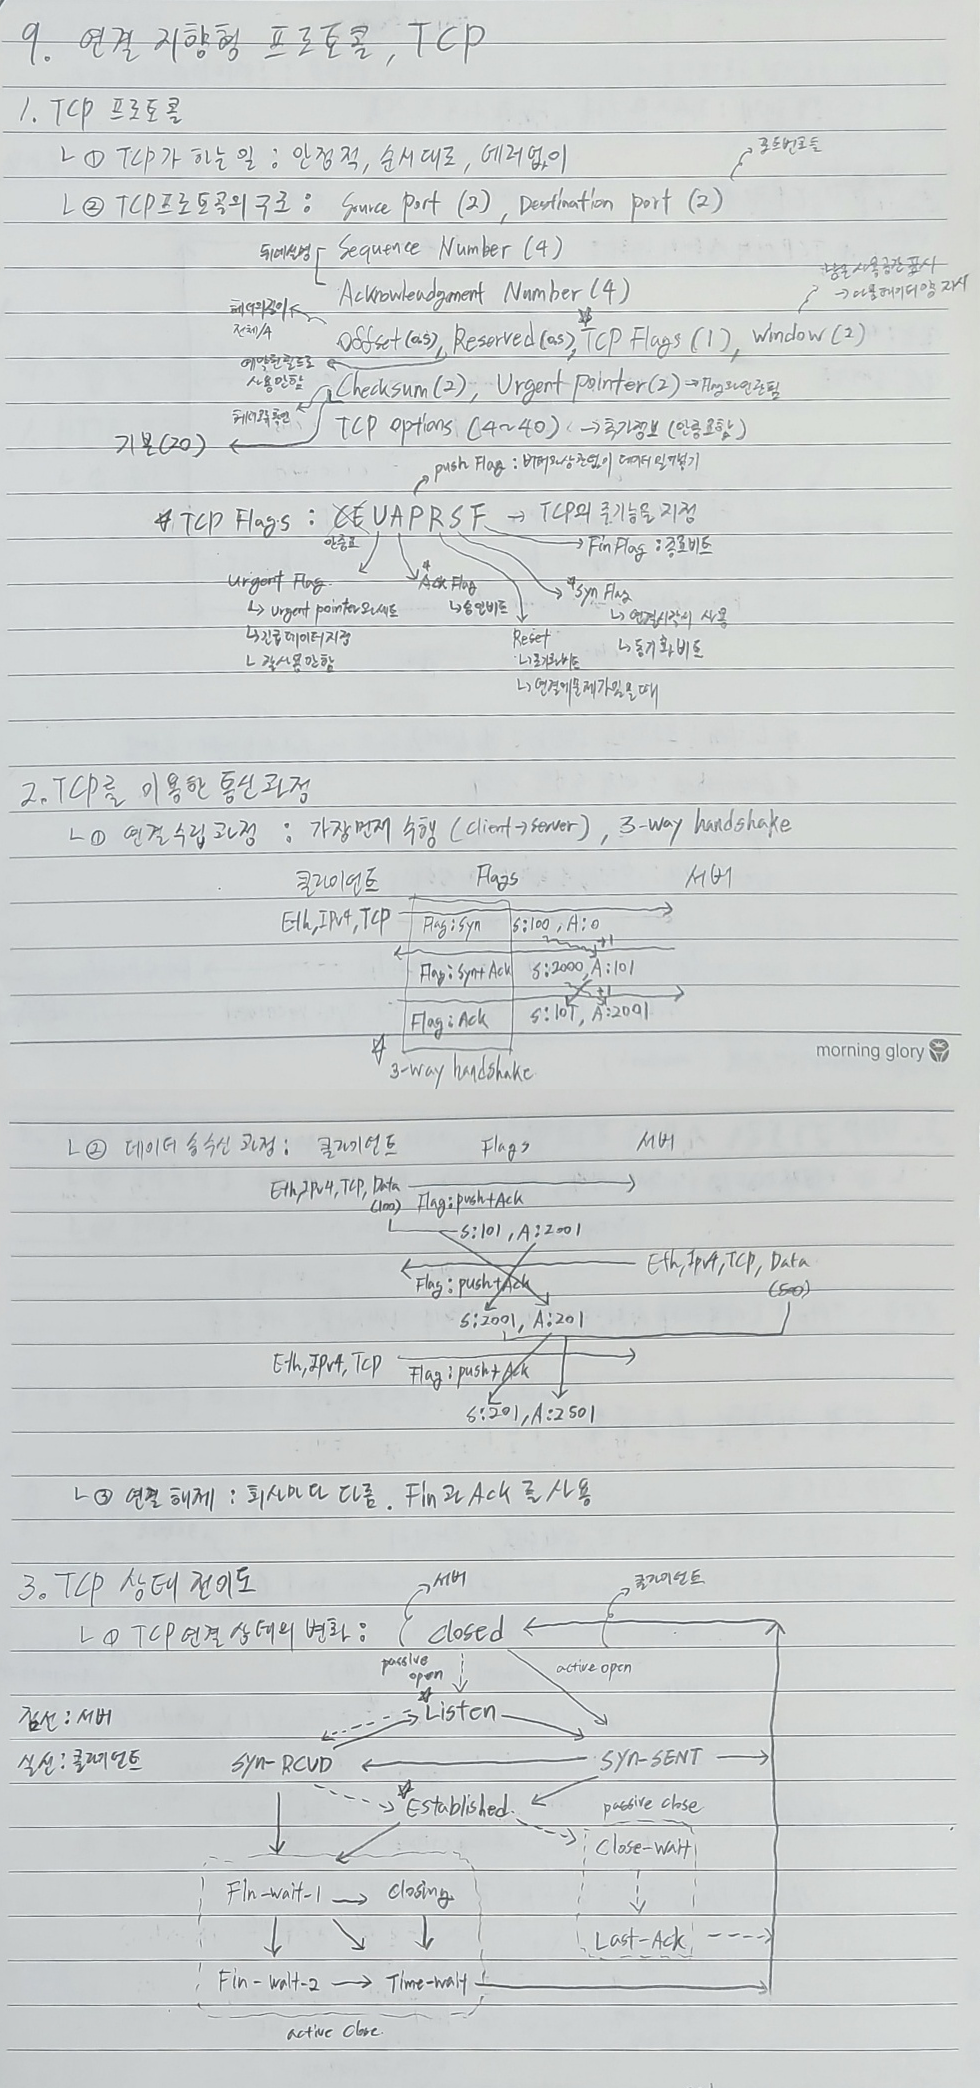 9. 연결 지향형 프로토콜, TCP
1. TCP 프로토콜
ㄴ ① TCP가 하는 일 : 안정적, 순서대로, 에러없이
포트번호들
ㄴ ② TCP프로토콜의 구조 : Source port (2), Destination port (2)
뒤에설명
Sequence Number (4)
Acknowleadgment Number (4)
남은 사용공간 표시
→ 더 보낼 데이터 양 지시
헤더의길이
전체/4
offset(0.5), Reserved(0.5), TCP Flags (1), window (2)
예약된필드로
사용안함
Checksum(2), Urgent pointer(2) → Flag와연관됨
TCP options (4~40) → 추가정보 (안중요함)
기본(20)
push Flag : 버퍼와상관없이 데이터 밀어넣기
TCP Flags : CEUAPRSF → TCP의 주기능을 지정
안중요
Fin Flag : 종료비트
Urgent Flag
ㄴ Urgent pointer와세트
ㄴ 긴급데이터지정
ㄴ 잘사용안함
Ack Flag
ㄴ 승인비트
Reset
ㄴ 초기화비트
ㄴ 연결에문제가있을때
Syn Flag
ㄴ 연결시작시 사용
ㄴ 동기화비트
2. TCP를 이용한 통신과정
ㄴ ① 연결 수립 과정 : 가장먼저 수행 (client→server), 3-way handshake
클라이언트 Flags 서버
Eth, IPv4, TCP Flag:Syn S:100, A:0
+1
Flag:Syn+Ack S:2000, A:101
+1
Flag:Ack S:101, A:2001
3-way handshake
morning glory
ㄴ ② 데이터 송수신 과정 : 클라이언트 Flags 서버
Eth, IPv4, TCP, Data
(100)
Flag:push+Ack
S:101, A:2001
Eth, Ipv4, TCP, Data
(500)
Flag:push+Ack
S:2001, A:201
Eth, IPv4, TCP
Flag:push+Ack
S:201, A:2501
ㄴ ③ 연결 해제 : 회사마다 다름. Fin과 Ack를 사용
3. TCP 상태 전이도
서버 클라이언트
ㄴ ① TCP 연결 상태의 변화 : closed
passive
open
active open
점선 : 서버
Listen
실선 : 클라이언트
SYN-RCVD SYN-SENT
Established
passive close
Close-wait
Fin-wait-1 → closing
Last-Ack
Fin-wait-2 → Time-wait
active Close